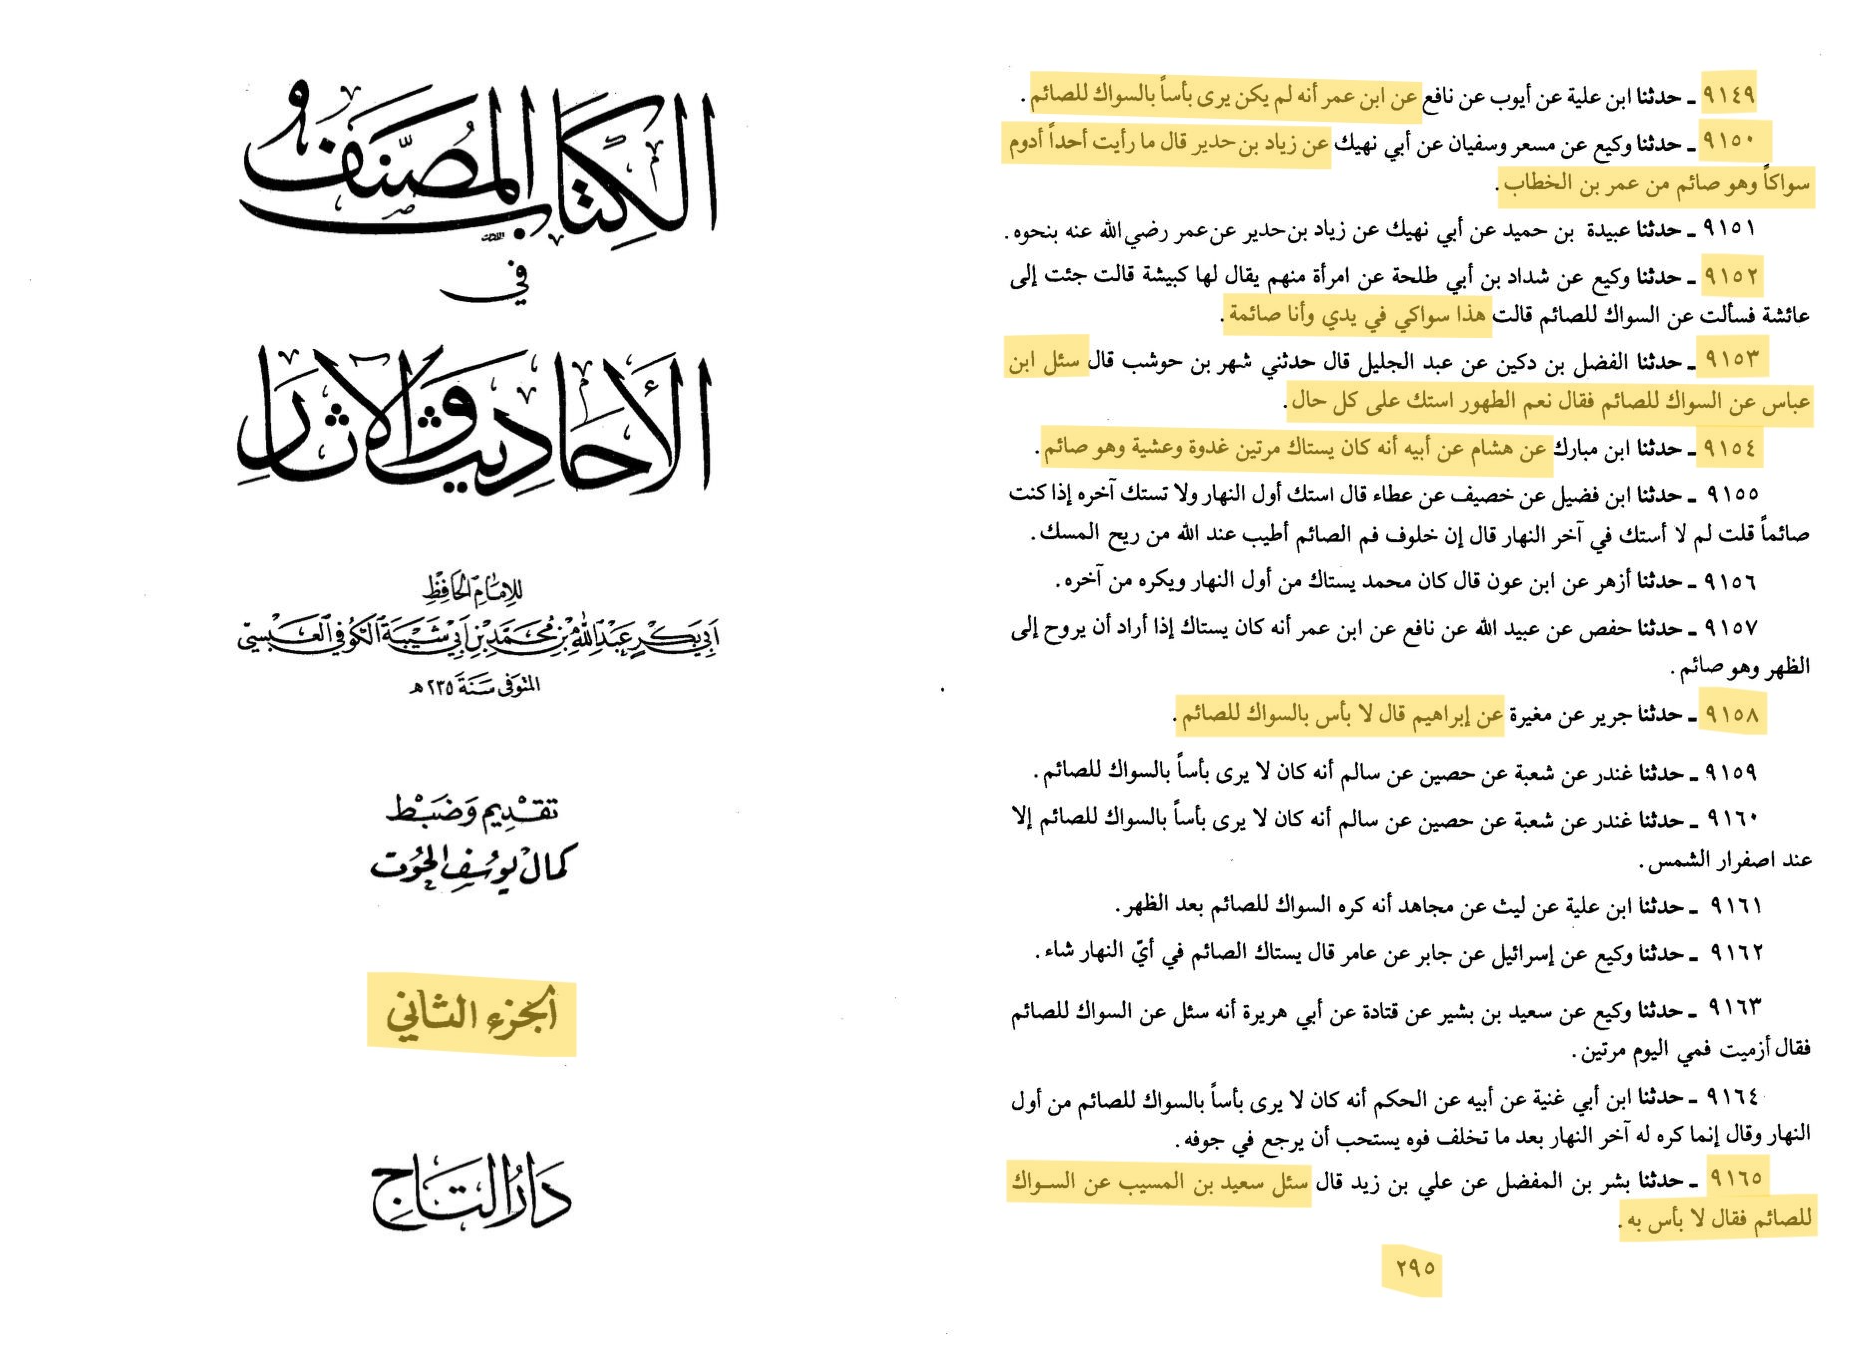 الكتاب المصنف
في
الأحاديث والآثار
للإمام الحافظ
أبي بكر عبد الله بن محمد بن أبي شيبة الكوفي العبسي
المتوفى سنة ٢٣٥ هـ
تقديم وضبط
كمال يوسف الحوت
الجزء الثاني
دار التاج
٩١٤٩ ـ حدثنا ابن علية عن أيوب عن نافع عن ابن عمر أنه لم يكن يرى بأساً بالسواك للصائم .
٩١٥٠ ـ حدثنا وكيع عن مسعر وسفيان عن أبي نهيك عن زياد بن حدير قال ما رأيت أحداً أدوم
سواكاً وهو صائم من عمر بن الخطاب .
٩١٥١ ـ حدثنا عبيدة بن حميد عن أبي نهيك عن زياد بن حدير عن عمر رضي الله عنه بنحوه .
٩١٥٢ ـ حدثنا وكيع عن شداد بن أبي طلحة عن امرأة منهم يقال لها كبيشة قالت جئت إلى
عائشة فسألت عن السواك للصائم قالت هذا سواكي في يدي وأنا صائمة .
٩١٥٣ ـ حدثنا الفضل بن دكين عن عبد الجليل قال حدثني شهر بن حوشب قال سئل ابن
عباس عن السواك للصائم فقال نعم الطهور استك على كل حال .
٩١٥٤ ـ حدثنا ابن مبارك عن هشام عن أبيه أنه كان يستاك مرتين غدوة وعشية وهو صائم .
٩١٥٥ ـ حدثنا ابن فضيل عن خصيف عن عطاء قال استك أول النهار ولا تستك آخره إذا كنت
صائماً قلت لم لا أستك في آخر النهار قال إن خلوف فم الصائم أطيب عند الله من ريح المسك .
٩١٥٦ ـ حدثنا أزهر عن ابن عون قال كان محمد يستاك من أول النهار ويكره من آخره .
٩١٥٧ ـ حدثنا حفص عن عبيد الله عن نافع عن ابن عمر أنه كان يستاك إذا أراد أن يروح إلى
الظهر وهو صائم .
٩١٥٨ ـ حدثنا جرير عن مغيرة عن إبراهيم قال لا بأس بالسواك للصائم .
٩١٥٩ ـ حدثنا غندر عن شعبة عن حصين عن سالم أنه كان لا يرى بأساً بالسواك للصائم .
٩١٦٠ ـ حدثنا غندر عن شعبة عن حصين عن سالم أنه كان لا يرى بأساً بالسواك للصائم إلا
عند اصفرار الشمس .
٩١٦١ ـ حدثنا ابن علية عن ليث عن مجاهد أنه كره السواك للصائم بعد الظهر .
٩١٦٢ ـ حدثنا وكيع عن إسرائيل عن جابر عن عامر قال يستاك الصائم في أيّ النهار شاء .
٩١٦٣ ـ حدثنا وكيع عن سعيد بن بشير عن قتادة عن أبي هريرة أنه سئل عن السواك للصائم
فقال أزميت فمي اليوم مرتين .
٩١٦٤ ـ حدثنا ابن أبي غنية عن أبيه عن الحكم أنه كان لا يرى بأساً بالسواك للصائم من أول
النهار وقال إنما كره له آخر النهار بعد ما تخلف فوه يستحب أن يرجع في جوفه .
٩١٦٥ ـ حدثنا بشر بن المفضل عن علي بن زيد قال سئل سعيد بن المسيب عن السواك
للصائم فقال لا بأس به .
٢٩٥